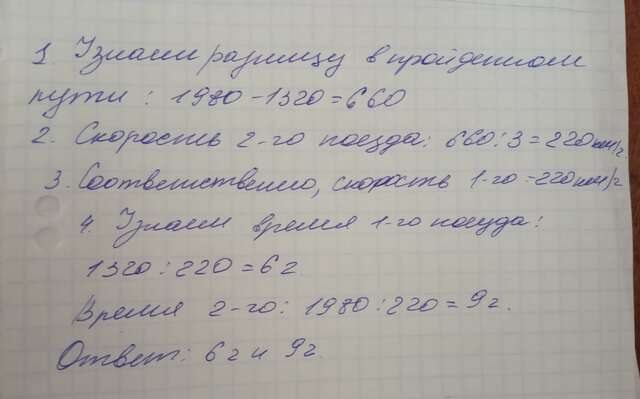 1. Узнаем разницу в пройденном
пути: 1980-1320=660
2. Скорость 2-го поезда: 660:3=220км/г
3. Соответственно, скорость 1-го=220км/г
4. Узнаем время 1-го поезда:
1320:220=6г.
Время 2-го: 1980:220=9г.
Ответ: 6г и 9г